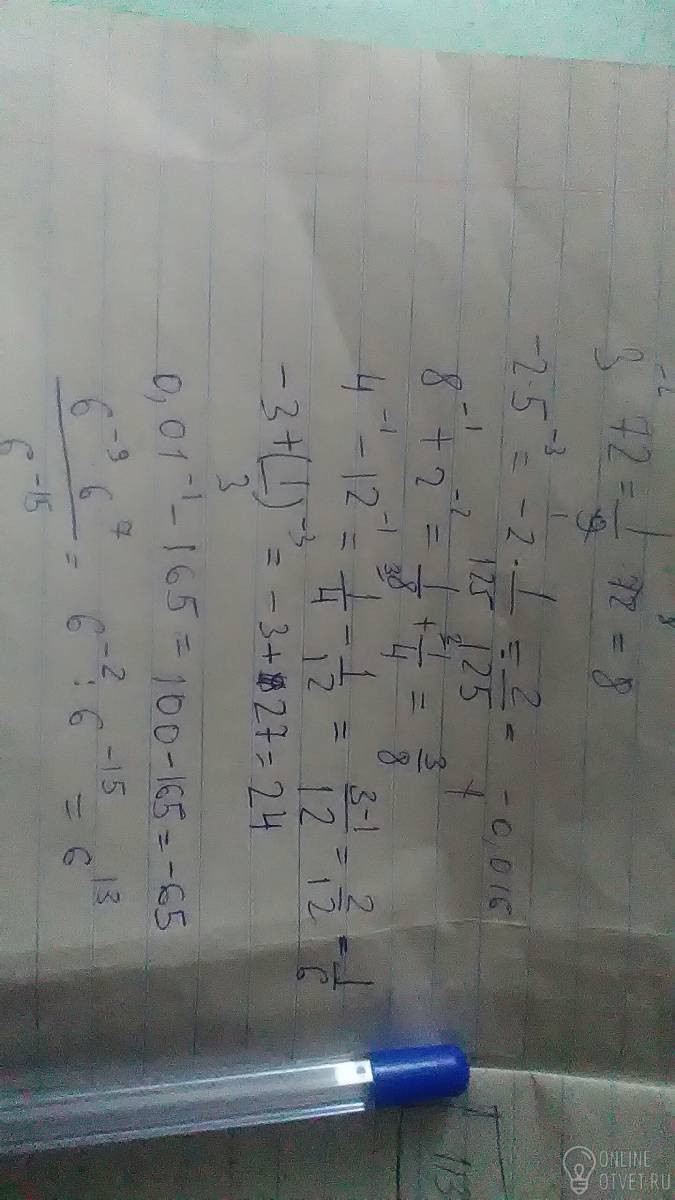 3⁻² 72 = 1/9 · 72 = 8
-2·5⁻³ = -2 · 1/125 = -2/125 = -0,016
8⁻¹ + 2⁻² = 1/8 + 1/4 = 3/8
4⁻¹ - 12⁻¹ = 1/4 - 1/12 = 3-1/12 = 2/12 = 1/6
-3 + (1/3)⁻³ = -3 + 27 = 24
0,01⁻¹ - 165 = 100 - 165 = -65
6⁻⁹ 6⁷ / 6⁻¹⁵ = 6⁻² : 6⁻¹⁵ = 6¹³
113
ONLINE
OTVET.RU